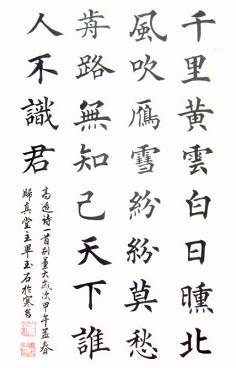 千里黄雲白日曛北
風吹鴈雪紛紛莫愁
前路無知己天下誰
人不識君
高适诗一首别董大歲次甲午孟春
歸真堂主玉石於寒舍